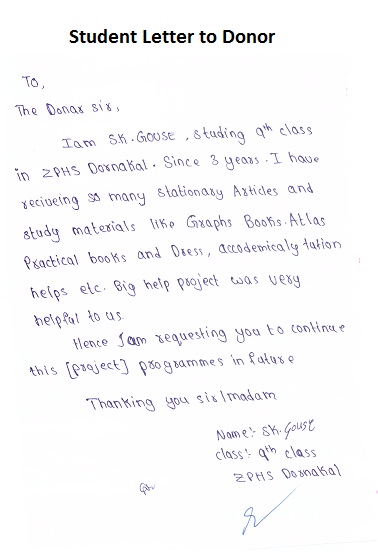 Student Letter to Donor
To,
The Donar sir,
Iam SK.GOUSE, studing 9th class
in ZPHS Dornakal. Since 3 years. I have
reciveing so many stationary Articles and
study materials like Graphs Books. Atlas
Practical books and Dress, accodemicaly tution
helps etc. Big help project was very
helpful to us.
Hence Iam requesting you to continue
this [project] programmes in future
Thanking you sir/madam
Name:- SK.Gouse
class:- 9th class
ZPHS Dornakal